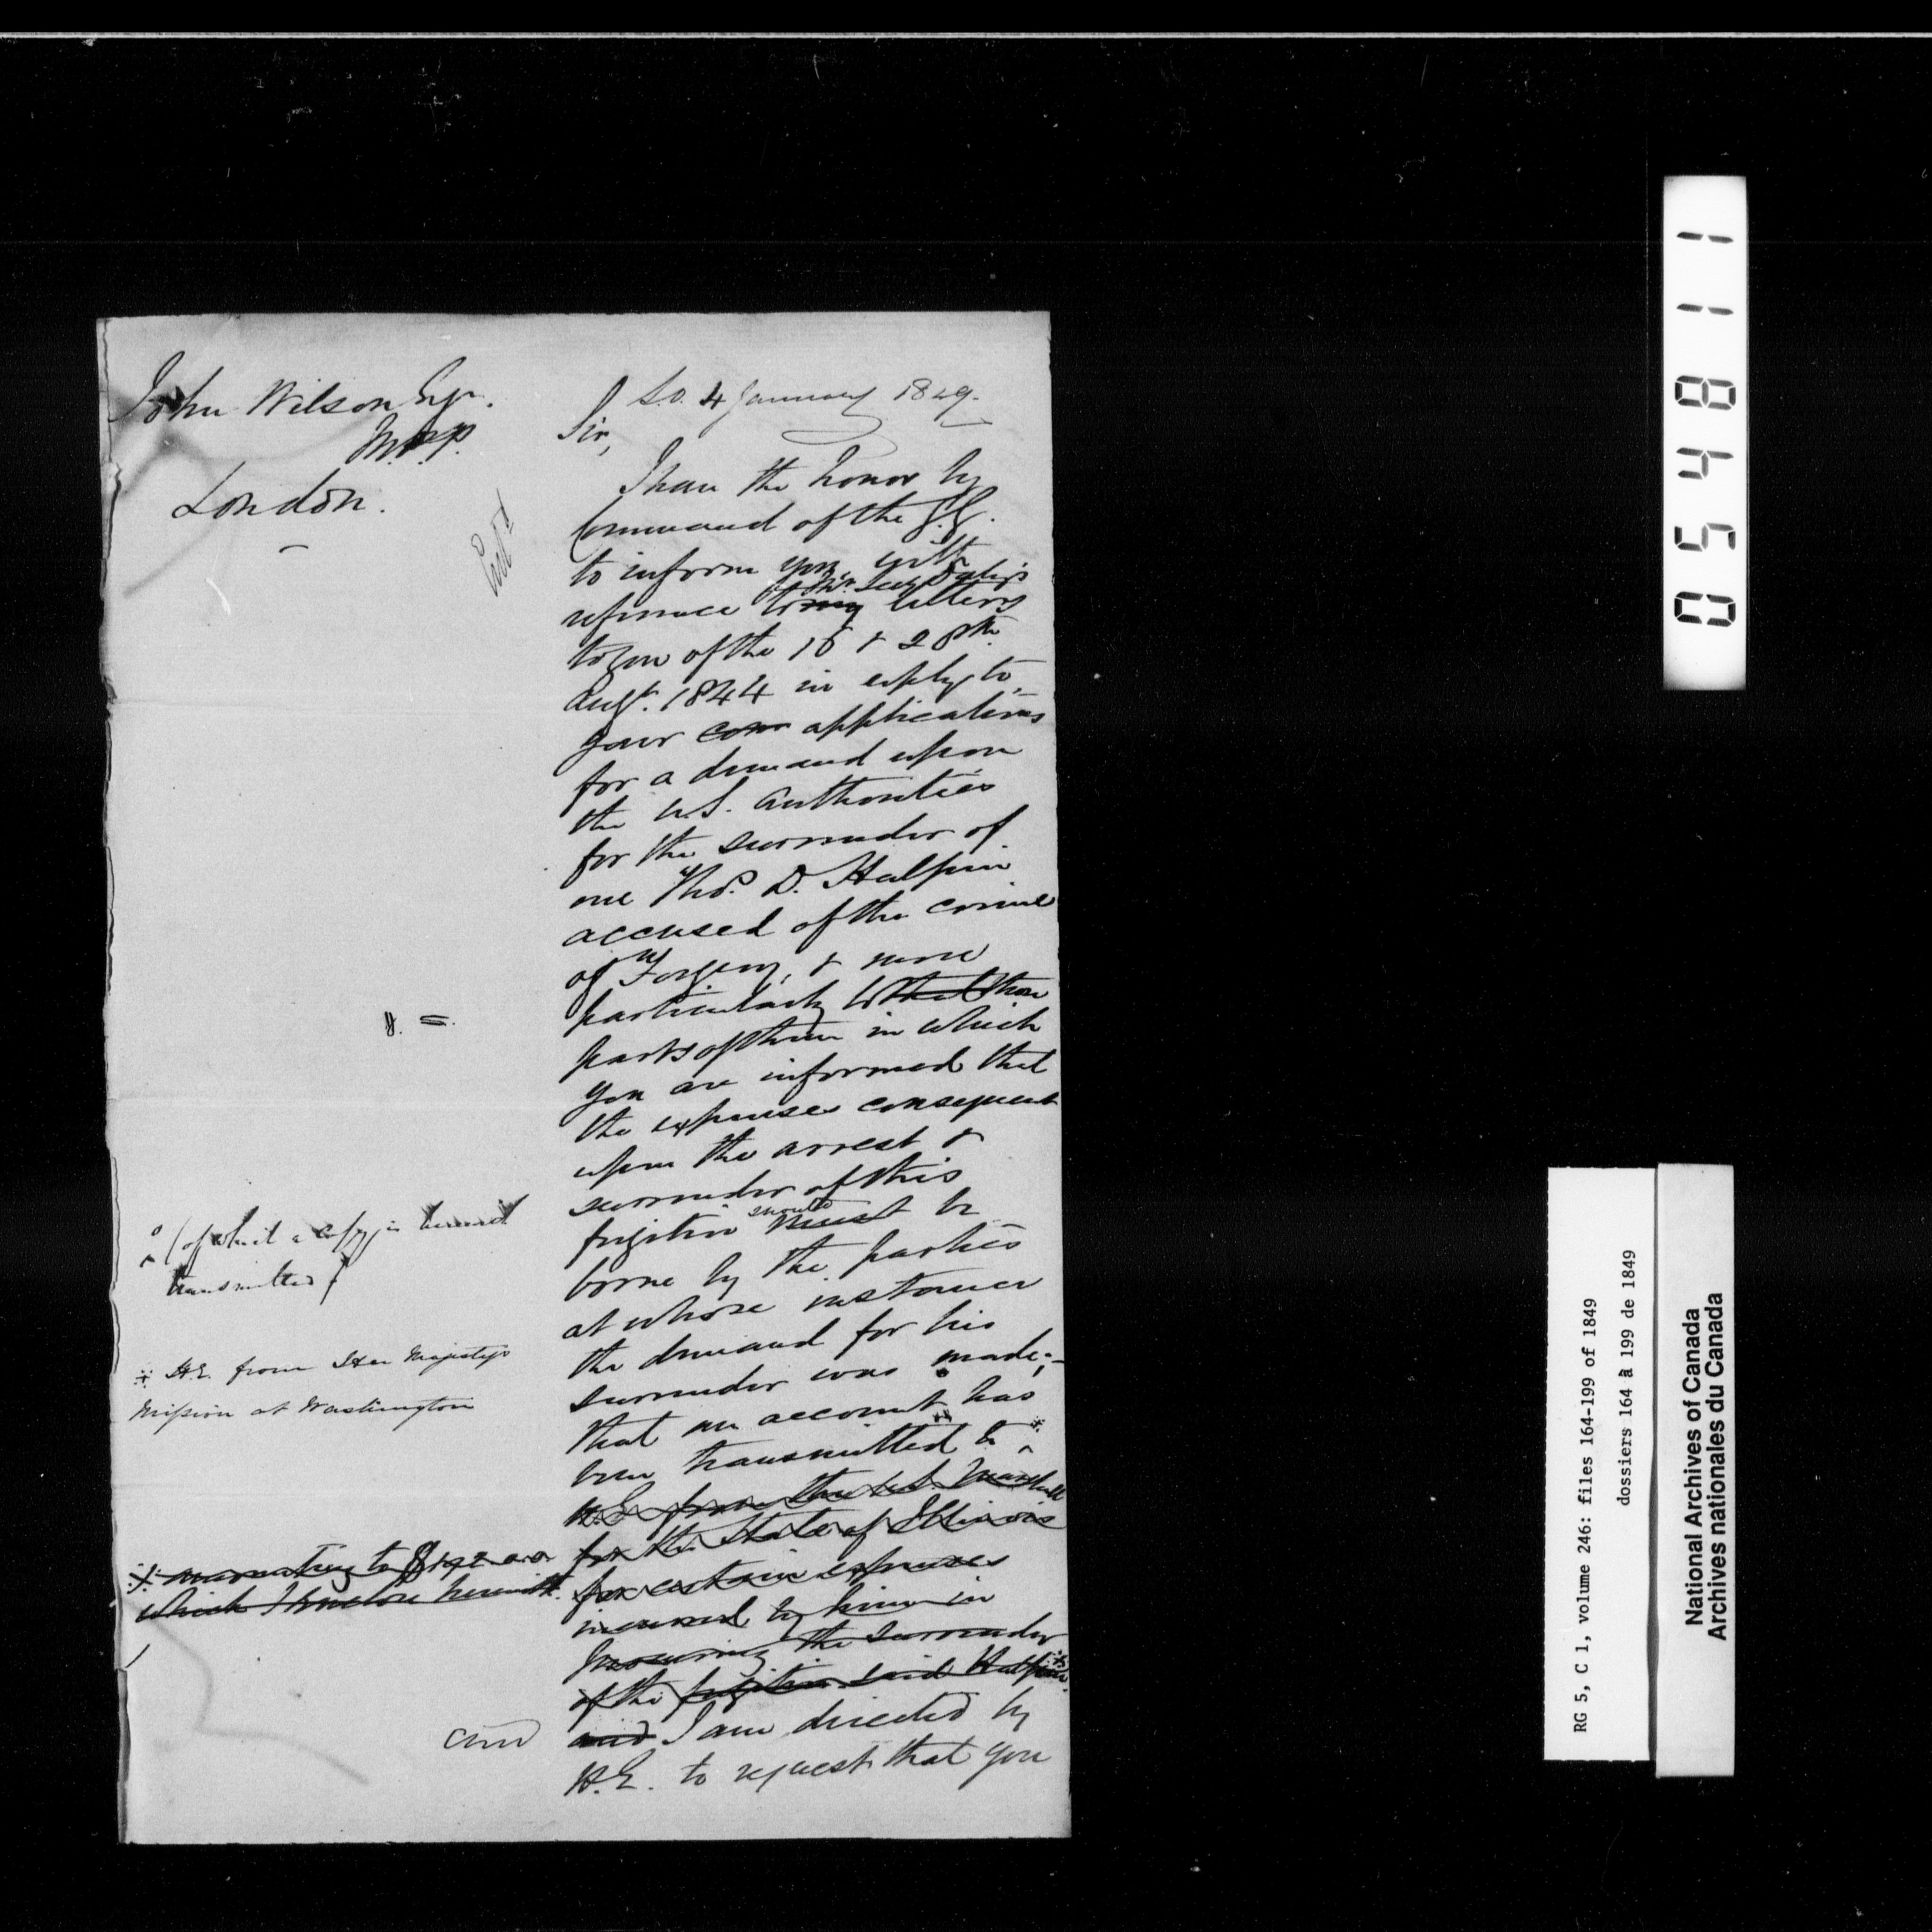 John Wilson Esqr.
M.P.P.
London.
S.O. 4 January 1849.
Sir,
I have the honor by
Command of the G.G.
to inform you, with
reference to my Mr. Secy Daly's letters
to you of the 15 & 28th
Augt. 1844 in reply to
your com applications
for a demand upon
the U.S. Authorities
for the surrender of
one Thos. D. Halpin
accused of the crime
of Forgery, & more
particularly to that those
parts of them in which
you are informed that
the expenses consequent
upon the arrest &
surrender of this
fugitive must should be
borne by the parties
at whose instance
the demand for his
surrender was made;-
that an account has
been transmitted to
H.E. from the U.S. Marshall
for the State of Illinois
for certain expenses
incurred by him in
procuring the surrender
of the fugitive said Halpin
and I am directed by
H.E. to request that you
(of which a copy is herewith
transmitted)
H.E. from Her Majesty's
Mission at Washington
amounting to
which I enclose herewith.
and
054811
RG 5, C 1, volume 246: files 164-199 of 1849
dossiers 164 à 199 de 1849
National Archives of Canada
Archives nationales du Canada